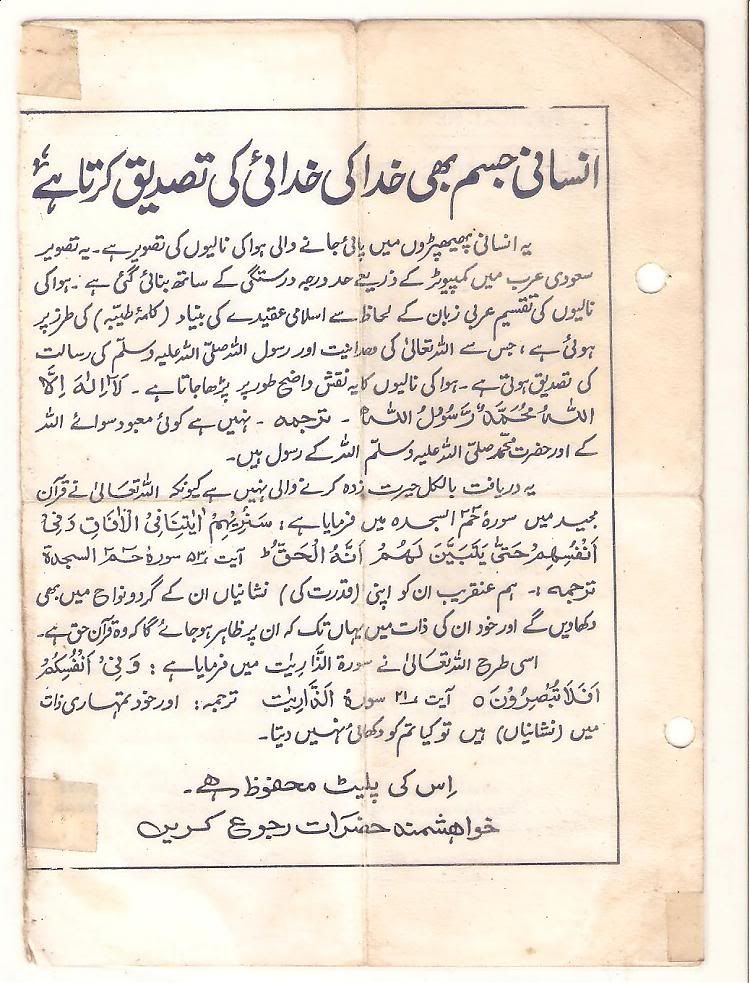 انسانی جسم بھی خدا کی خدائی کی تصدیق کرتا ہے
یہ انسانی پھیپھڑوں میں پائی جانے والی ہوا کی نالیوں کی تصویر ہے۔ یہ تصویر
سعودی عرب میں کمپیوٹر کے ذریعے حد درجہ درستگی کے ساتھ بنائی گئی ہے۔ ہوا کی
نالیوں کی تقسیم عربی زبان کے لحاظ سے اسلامی عقیدے کی بنیاد (کلمۂ طیّبہ) کی طرز پر
ہوئی ہے، جس سے اللہ تعالیٰ کی وحدانیت اور رسول اللہ صلّی اللہ علیہ وسلّم کی رسالت
کی تصدیق ہوتی ہے۔ ہوا کی نالیوں کا یہ نقش واضح طور پر پڑھا جاتا ہے۔ لَآ اِلٰہَ اِلَّا
اللّٰہُ مُحَمَّدٌ رَّسُوْلُ اللّٰہِ۔ ترجمہ۔ نہیں ہے کوئی معبود سوائے اللہ
کے اور حضرت محمّد صلّی اللہ علیہ وسلّم اللہ کے رسول ہیں۔
یہ دریافت بالکل حیرت زدہ کرنے والی نہیں ہے کیونکہ اللہ تعالیٰ نے قرآن
مجید میں سورۂ حٰمٓ السجدہ میں فرمایا ہے: سَنُرِیْہِمْ اٰیٰتِنَا فِی الْاٰفَاقِ وَفِیْٓ
اَنْفُسِہِمْ حَتّٰی یَتَبَیَّنَ لَہُمْ اَنَّہُ الْحَقُّ ط آیت ۵۳ سورہ حٰمٓ السجدۃ
ترجمہ:۔ ہم عنقریب ان کو اپنی (قدرت کی) نشانیاں ان کے گرد و نواح میں بھی
دکھا دیں گے اور خود ان کی ذات میں یہاں تک کہ ان پر ظاہر ہو جائے گا کہ وہ قرآن حق ہے۔
اسی طرح اللہ تعالیٰ نے سورۃ الذّٰاریٰت میں فرمایا ہے: وَ فِیْٓ اَنْفُسِکُمْ
اَفَلَا تُبْصِرُوْنَ ٥ آیت ۲۱ سورۂ الذّٰاریٰت ترجمہ: اور خود تمہاری ذات
میں (نشانیاں) ہیں تو کیا تم کو دکھائی نہیں دیتا۔
اِس کی پلیٹ محفوظ ہے۔
خواہشمند حضرات رجوع کریں